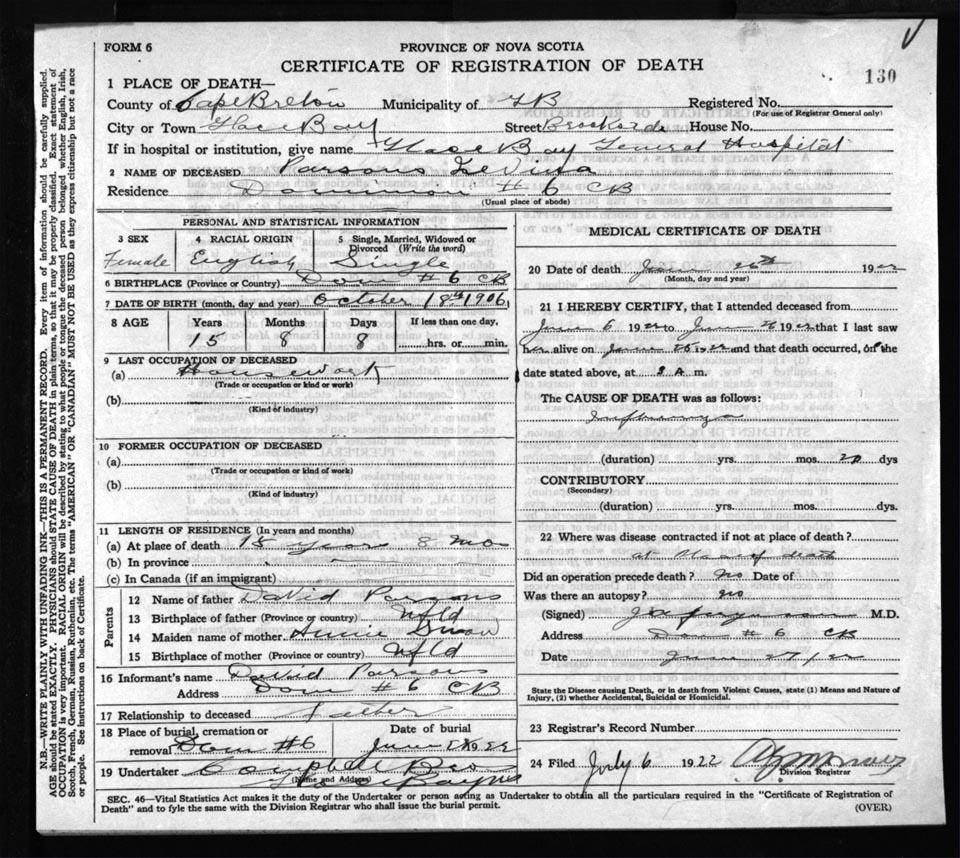 FORM 6
PROVINCE OF NOVA SCOTIA
CERTIFICATE OF REGISTRATION OF DEATH
130
1 PLACE OF DEATH—
County of Cape Breton Municipality of Registered No.
(For use of Registrar General only)
City or Town Glace Bay Street House No.
If in hospital or institution, give name Glace Bay General Hospital
2 NAME OF DECEASED Parsons
Residence Dominion # 6 CB
(Usual place of abode)
PERSONAL AND STATISTICAL INFORMATION
3 SEX 4 RACIAL ORIGIN 5 Single, Married, Widowed or Divorced (Write the word)
Female English Single
6 BIRTHPLACE (Province or Country) Dom # 6 CB
7 DATE OF BIRTH (month, day and year) October 18th 1906
8 AGE Years Months Days If less than one day,
15 8 8 hrs. or min.
9 LAST OCCUPATION OF DECEASED
(a) Housework
(Trade or occupation or kind or work)
(b)
(Kind of industry)
10 FORMER OCCUPATION OF DECEASED
(a)
(Trade or occupation or kind of work)
(b)
(Kind of industry)
11 LENGTH OF RESIDENCE (In years and months)
(a) At place of death 15 years 8 mos
(b) In province
(c) In Canada (if an immigrant)
Parents
12 Name of father David Parsons
13 Birthplace of father (Province or country) Nfld
14 Maiden name of mother Annie
15 Birthplace of mother (Province or country) Nfld
16 Informant's name David Parsons
Address Dom # 6 CB
17 Relationship to deceased father
18 Place of burial, cremation or removal Dom #6
Date of burial June 1922
19 Undertaker Campbell
(Name and address)
MEDICAL CERTIFICATE OF DEATH
20 Date of death June 26th 1922
(Month, day and year)
21 I HEREBY CERTIFY, that I attended deceased from
June 6 1922 to June 26 1922 that I last saw
her alive on June 25 1922 and that death occurred, on the
date stated above, at A. m.
The CAUSE OF DEATH was as follows:
Influenza
(duration) yrs. mos. 20 dys
CONTRIBUTORY
(Secondary)
(duration) yrs. mos. dys.
22 Where was disease contracted if not at place of death?
at place of death
Did an operation precede death? No Date of
Was there an autopsy? no
(Signed) M.D.
Address Dom # 6 CB
Date June
State the Disease causing Death, or in death from Violent Causes, state (1) Means and Nature of
Injury, (2) whether Accidental, Suicidal or Homicidal.
23 Registrar's Record Number
24 Filed July 6 1922
Division Registrar
SEC. 46—Vital Statistics Act makes it the duty of the Undertaker or person acting as Undertaker to obtain all the particulars required in the "Certificate of Registration of
Death" and to fyle the same with the Division Registrar who shall issue the burial permit.
(OVER)
N.B.—WRITE PLAINLY WITH UNFADING INK—THIS IS A PERMANENT RECORD. Every item of information should be carefully supplied.
AGE should be stated EXACTLY. PHYSICIANS should STATE CAUSE OF DEATH in plain terms, so that it may be properly classified. Exact statement of
OCCUPATION is very important. RACIAL ORIGIN will be described by stating to what people or tongue the deceased person belonged whether English, Irish,
Scotch, French, German, Russian, Ruthenian, etc. The terms "AMERICAN" OR "CANADIAN" MUST NOT BE USED as they express citizenship but not a race
or people. See instructions on back of Certificate.